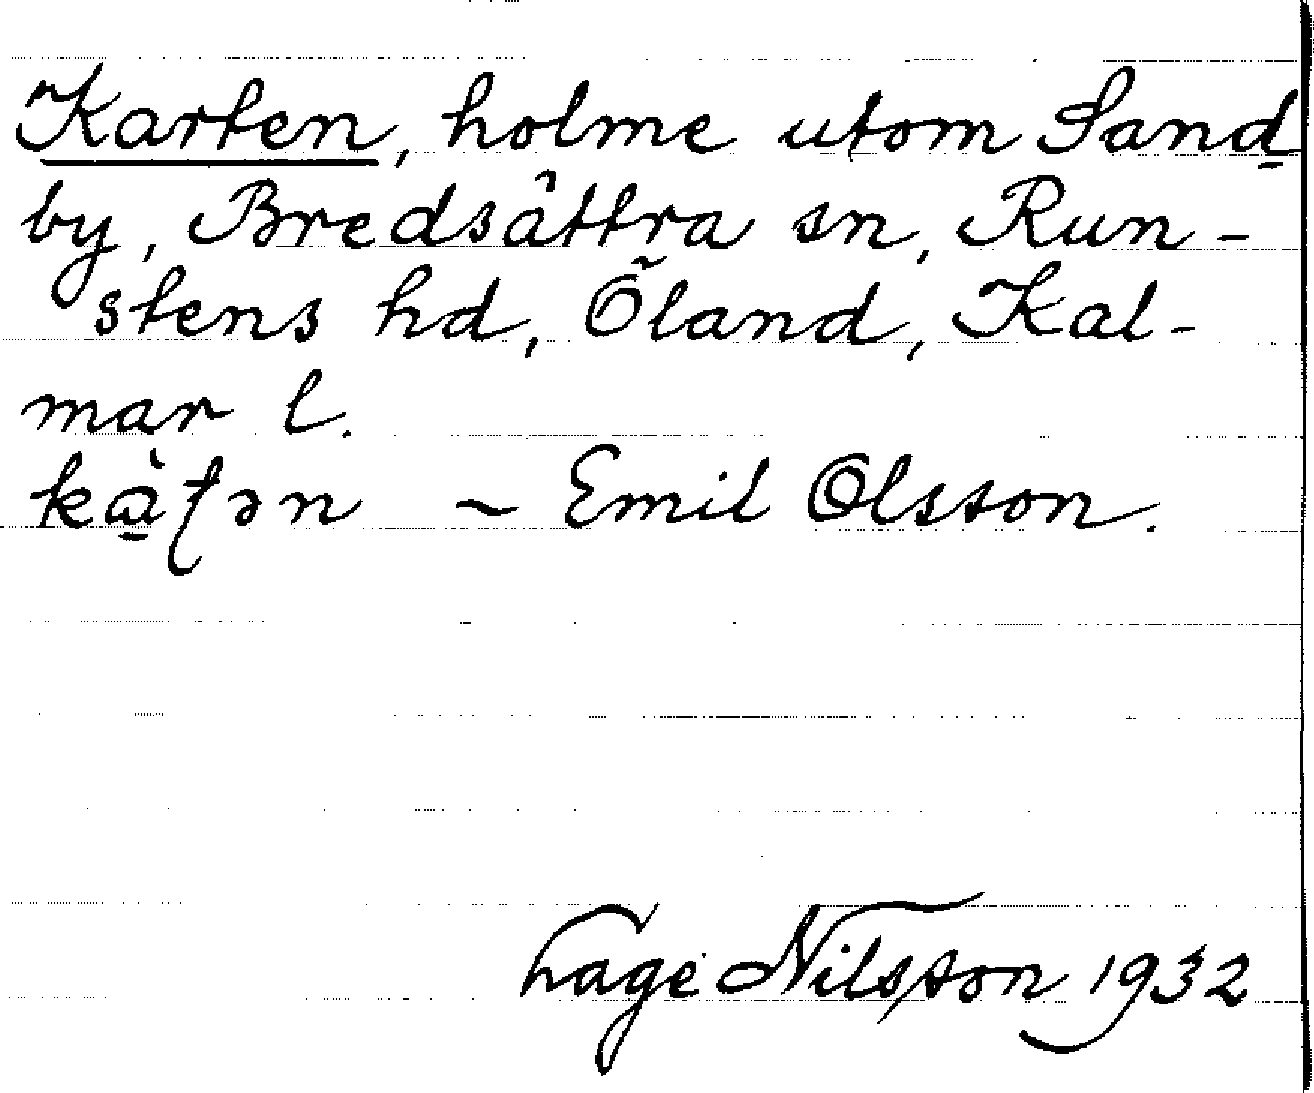 Karten, holme utom Sand
by, Bredsättra sn, Run-
stens hd, Öland, Kal-
mar l.
kàʈən ~ Emil Olsson.
Hage Nilsson 1932